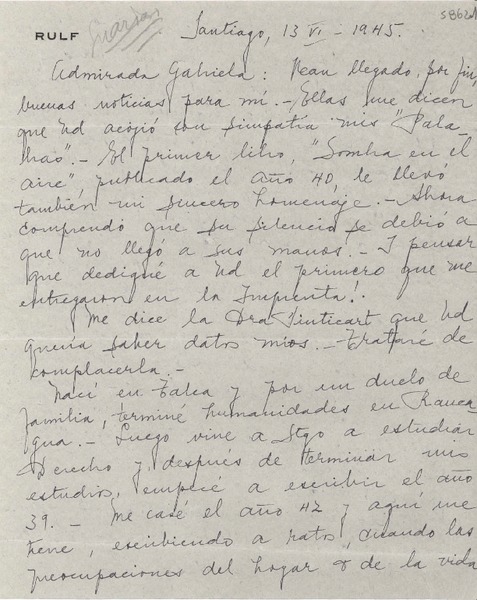 S862
RULF Guardar
Santiago, 13 VI - 1945.
Admirada Gabriela: Han llegado, por fin,
buenas noticias para mí.- Ellas me dicen
que Ud acojió con simpatía mis "Pala-
bras".- El primer libro, "Sombra en el
aire", publicado el año 40, le llevó
también mi sincero homenaje.- Ahora
comprendo que su silencio se debió a
que no llegó a sus manos.- Y pensar
que dediqué a Ud el primero que me
entregaron en la Imprenta!.
Me dice la Dra que Ud
quería saber datos míos.- Trataré de
complacerla.-
Nací en Talca y por un duelo de
familia, terminé humanidades en Ranca
gua.- Luego vine a Stgo a estudiar
Derecho y, después de terminar mis
estudios, empecé a escribir el año
39.- Me casé el año 42 y aquí me
tiene, escribiendo a ratos, cuando las
preocupaciones del hogar o de la vida